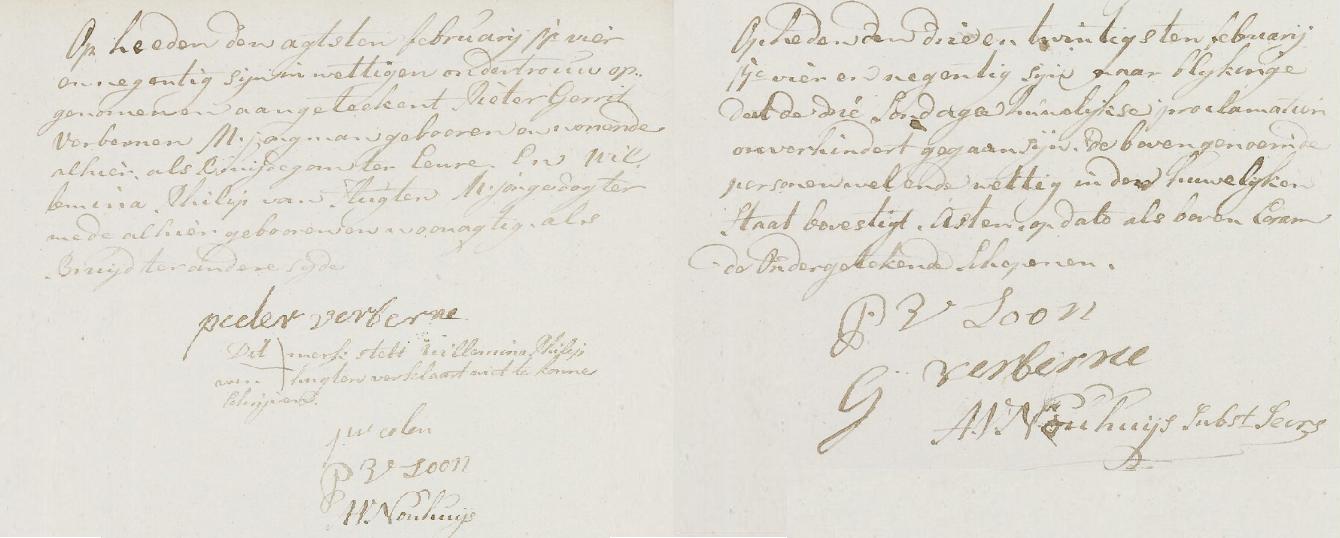 Op heeden den agtsten februarij jc vier
en negentig sijn in wettigen ondertrouw op-
genomen en aangeteekent Pieter Gerrit
Verbernen N: jongman gebooren en woonende
alhier als Bruijdegom ter Eenre. En Wil
lemina Philip van Hugten N: jongedogter
mede alhier gebooren en woonagtig als
Bruijd ter andere syde
peeter verberne
Dit merk stelt Willemina Philip
van Hugten verklaart niet te konne
schrijven.
jw colen
P V Loon
AV Nouhuijs
Op heden den drie en twintigsten februarij
jc vier en negentig sijn naar blykinge
dat de drie Sondagse huwelykse proclamatien
onverhindert gegaan sijn. De bovengenoemde
personen wel ende wettig in den huwelyken
Staat bevestigt. Asten op dato als boven Coram
de Ondergetekende Schepenen.
P V Loon
G verberne
AV Nouhuijs Subst Secrs